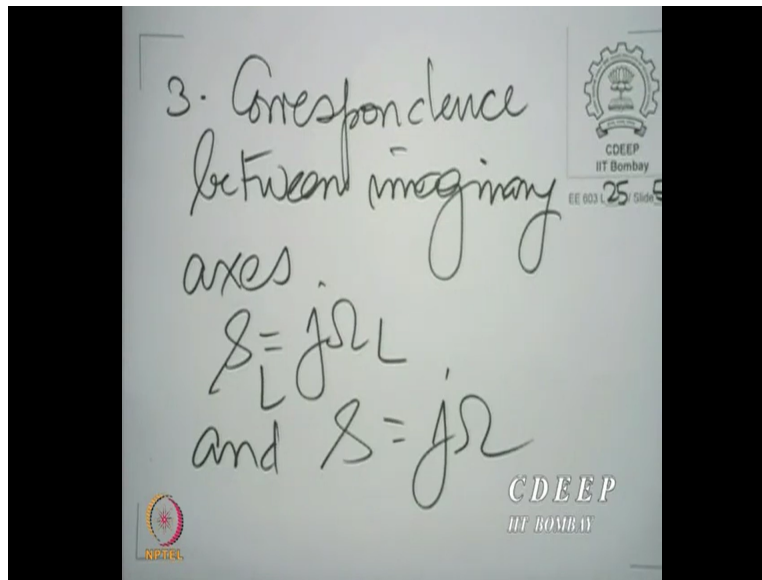 3. Correspondence
between imaginary
axes.
S_L = jΩ_L
and S = jΩ
CDEEP
IIT Bombay
EE 603 L 25 / Slide 5
CDEEP
IIT BOMBAY
NPTEL